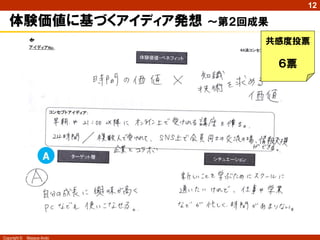 12
体験価値に基づくアイディア発想 ～第2回成果
共感度投票
6票
アイディアNo.
体験価値・ベネフィット
時間の価値 × 知識
技術を求める
価値
コンセプトアイディア:
早朝 or 21:00 以降に オンライン上で受けれる講座を催る。
24時間/複数人で受けれて、SNS上で会員同士の交流の場、情報交換ができる。
企業とコラボ
A
ターゲット層
シチュエーション
A
自分の成長に興味が高く
PCなども使いこなせる。
新しいことを学ぶためにスクールに
通いたいけれど、仕事や学業
などが忙しくて時間があまりない。
Copyright ©